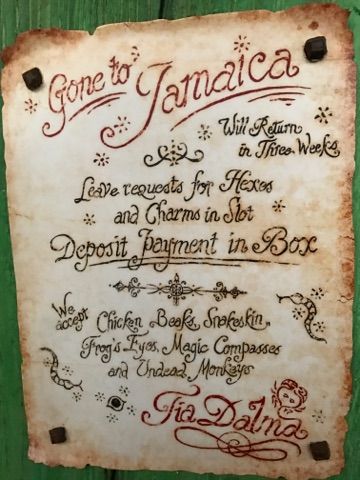 Gone to Jamaica
Will Return
in Three Weeks
Leave requests for Hexes
and Charms in Slot
Deposit Payment in Box
We
accept
Chicken Beaks, Snakeskin,
Frog's Eyes, Magic Compasses
and Undead Monkeys
Tia Dalma